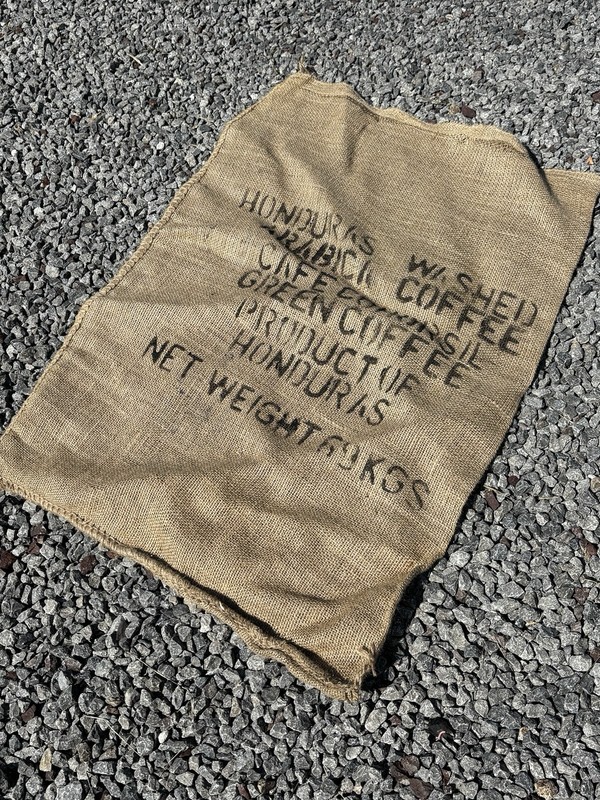 HONDURAS WASHED
ARABICA COFFEE
CAFE
GREEN COFFEE
PRODUCT OF
HONDURAS
NET WEIGHT 69 KGS